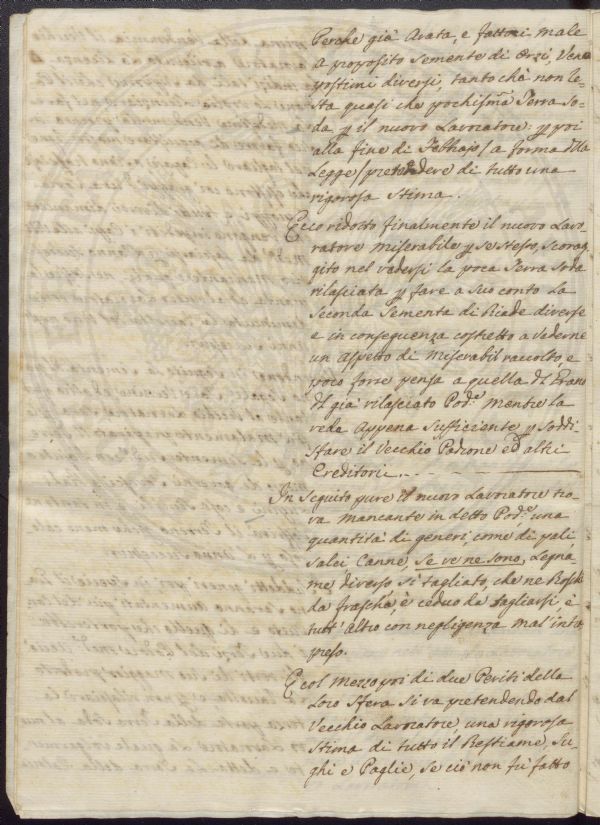 Perchè già Arata, e fattovi male
a proposito Semente di Orzi, Vene
postimi diversi, tanto chà non re-
sta quasi che pochissma Terra So-
da p il nuovo Lavoratore: p poi
alla fine di Febbrajo / a forma dlla
Legge / pretendere di tutto una
rigorosa Stima.
Ecco ridotto finalmente il nuovo Lavo-
ratore miserabile p se stesso, scorag-
gito nel vedersi la poca Terra soda
rilasciata p fare a suo conto la
Seconda Sementa di Biade diverse
e in conseguenza costretto a vederne
un aspetto di miserabil raccolto, e
poco forse pensa a quella dl Grano
dl già rilasciato Pode mentre la
vede appena sufficiente p soddi-
sfare il Vecchio Padrone ed altri
Creditori.
In Seguito pure il nuovo Lavoratore tro-
va mancante in detto Pode una
quantità di generi, come di pali
Salci Canne, se ve ne sono, Legna
me diverso si tagliato, che ne Boschi
da frasche, è ceduo da tagliarsi, è
tutt'altro con negligenza mal'inta
preso.
E col mezzo poi di due Periti della
Loro Sfera si va pretendendo dal
Vecchio Lavoratore una rigorosa
Stima di tutto il Bestiame, Su-
ghi e Paglie, se ciò non fù fatto